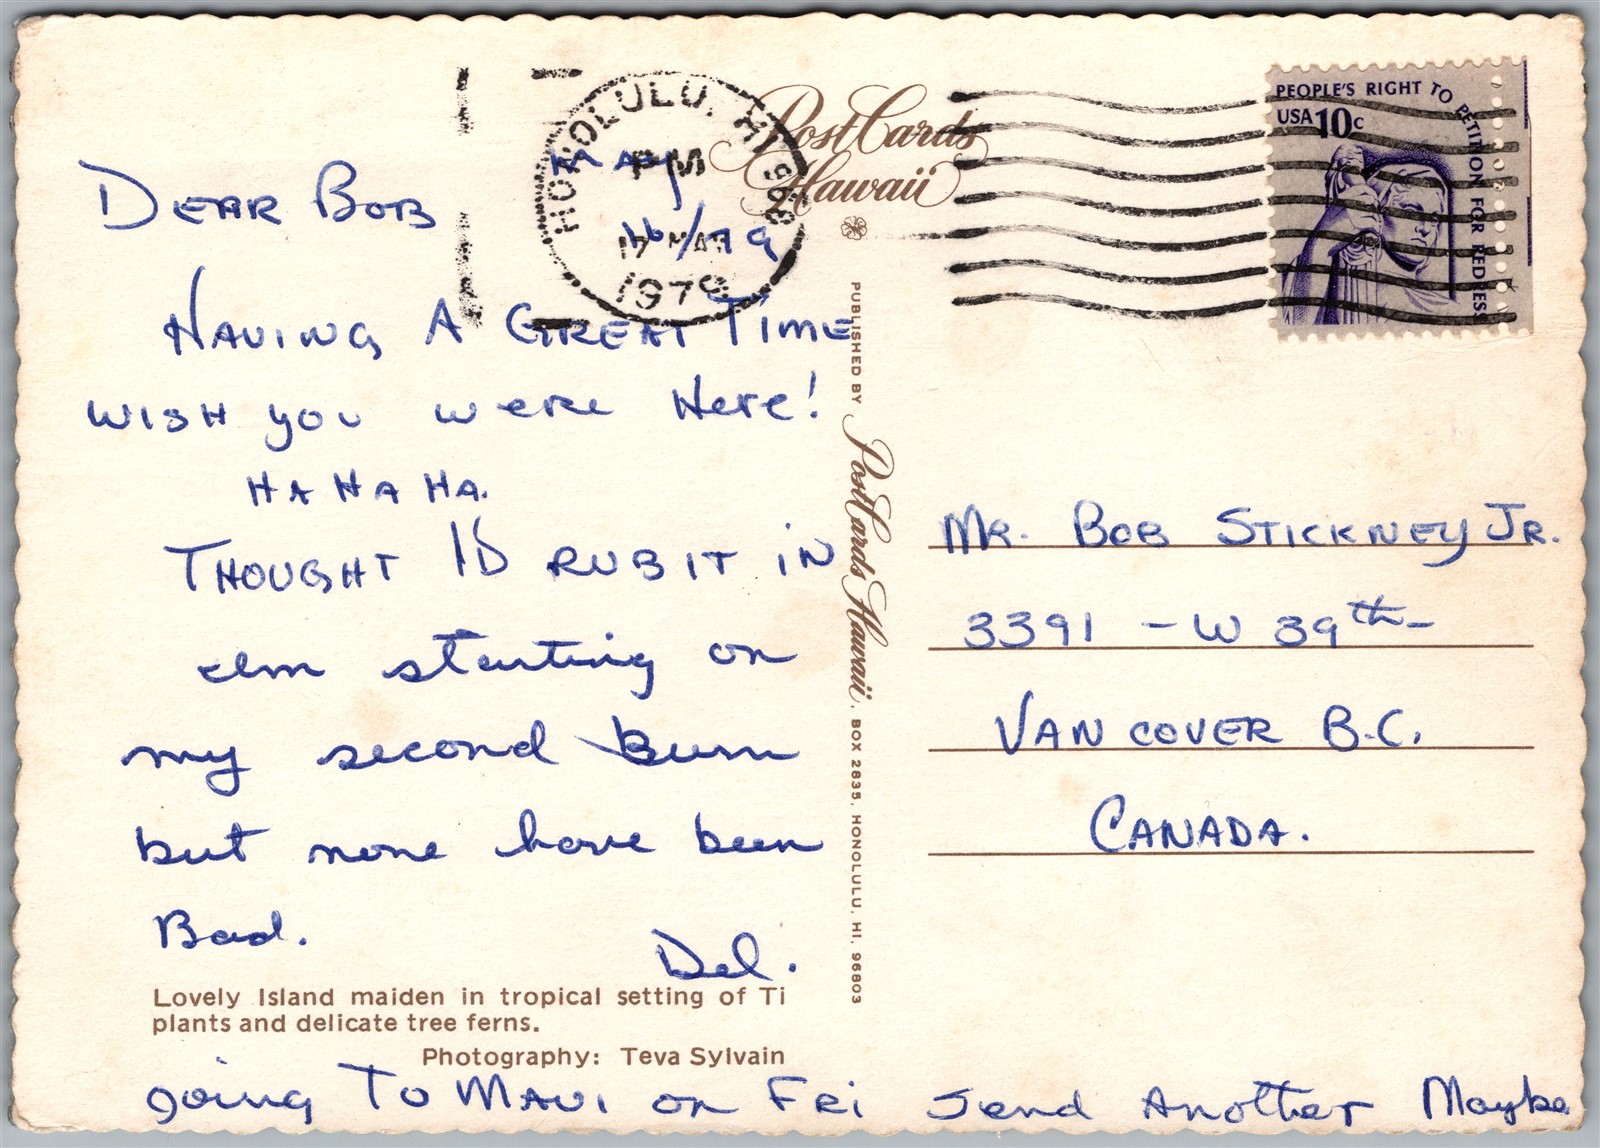 DEAR BOB
MAY
16/79
HAVING A GREAT TIME
WISH you were Here!
HA HA HA.
THOUGHT ID RUB IT IN
Im starting on
my second Burn
but none have been
Bad.
Del.
Lovely Island maiden in tropical setting of Ti
plants and delicate tree ferns.
Photography: Teva Sylvain
going To MAUI on FRi Send Another Maybe
HONOLULU, HI 968
PM
17 MAR
1979
PostCards
Hawaii
PUBLISHED BY PostCards Hawaii, BOX 2835, HONOLULU, HI. 96803
PEOPLE'S RIGHT TO PETITION FOR REDRESS
USA 10c
MR. BOB STICKNEY JR.
3391 - W 39th-
VANCOVER B.C.
CANADA.